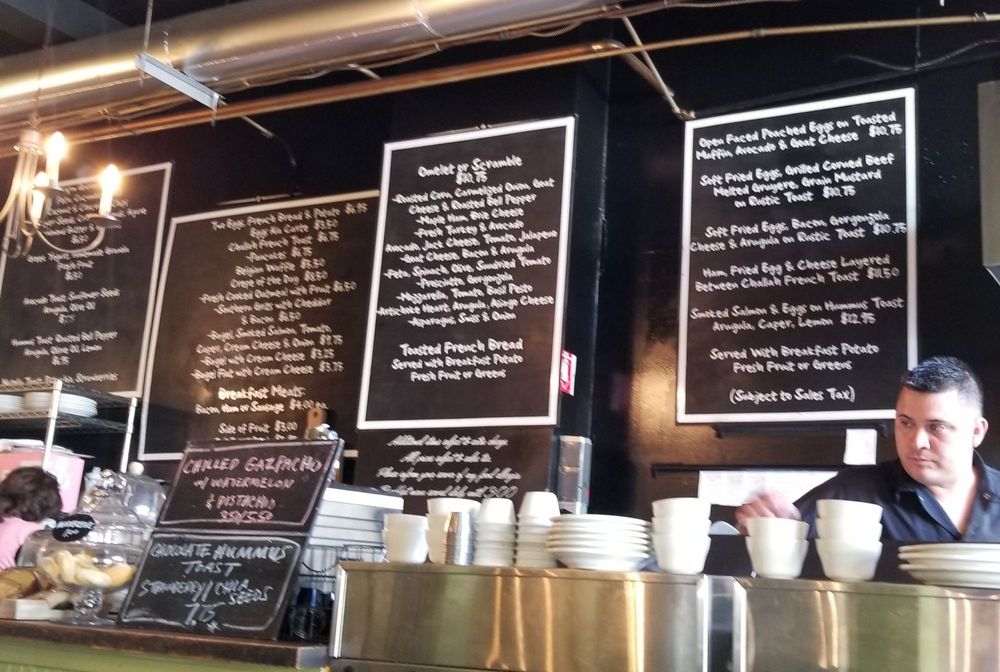 Greek Yogurt, Homemade Granola
Avocado Toast, Sunflower Seeds
Arugula, Olive Oil
Hummus Toast, Roasted Bell Pepper
Arugula, Olive Oil, Lemon
Strawberries
Two Eggs, French Bread & Potato $6.95
Eggs Ala Carte $3.50
Challah French Toast $6.75
-Pancakes $6.75
Belgian Waffle $6.50
Crepe of the Day $8.50
-Fresh Cooked Oatmeal with Fruit $6.50
-Southern Grits with Cheddar
& Bacon $6.50
-Bagel, Smoked Salmon, Tomato,
Caper, Cream Cheese & Onion $9.75
-Bagel with Cream Cheese $3.25
-Bagel Flat with Cream Cheese $3.75
Breakfast Meats:
Bacon, Ham or Sausage $4.00
Side of Fruit $3.00
Omelet or Scramble
$10.75
-Roasted Corn, Carmelized Onion, Goat
Cheese & Roasted Bell Pepper
-Maple Ham, Brie Cheese
-Fresh Turkey & Avocado
Avocado, Jack Cheese, Tomato, Jalapeno
-Goat Cheese, Bacon & Arugula
-Feta, Spinach, Olive, Sundried Tomato
-Prosciutto, Gorgonzola
-Mozzarella, Tomato, Basil Pesto
-Artichoke Heart, Arugula, Asiago Cheese
-Asparagus, Swiss & Onion
Toasted French Bread
Served with Breakfast Potato
Fresh Fruit or Greens
Open Faced Poached Eggs on Toasted
Muffin, Avocado & Goat Cheese $10.75
Soft Fried Eggs, Grilled Corned Beef
Melted Gruyere, Grain Mustard
on Rustic Toast $10.75
Soft Fried Eggs, Bacon, Gorgonzola
Cheese & Arugula on Rustic Toast $10.75
Ham, Fried Egg & Cheese Layered
Between Challah French Toast $11.50
Smoked Salmon & Eggs on Hummus Toast
Arugula, Caper, Lemon $12.95
Served With Breakfast Potato
Fresh Fruit or Greens
(Subject to Sales Tax)
CHILLED GAZPACHO
w/ WATERMELON
& PISTACHIO
3.50/5.50
CHOCOLATE HUMMUS
TOAST
STRAWBERRY/CHIA
SEEDS